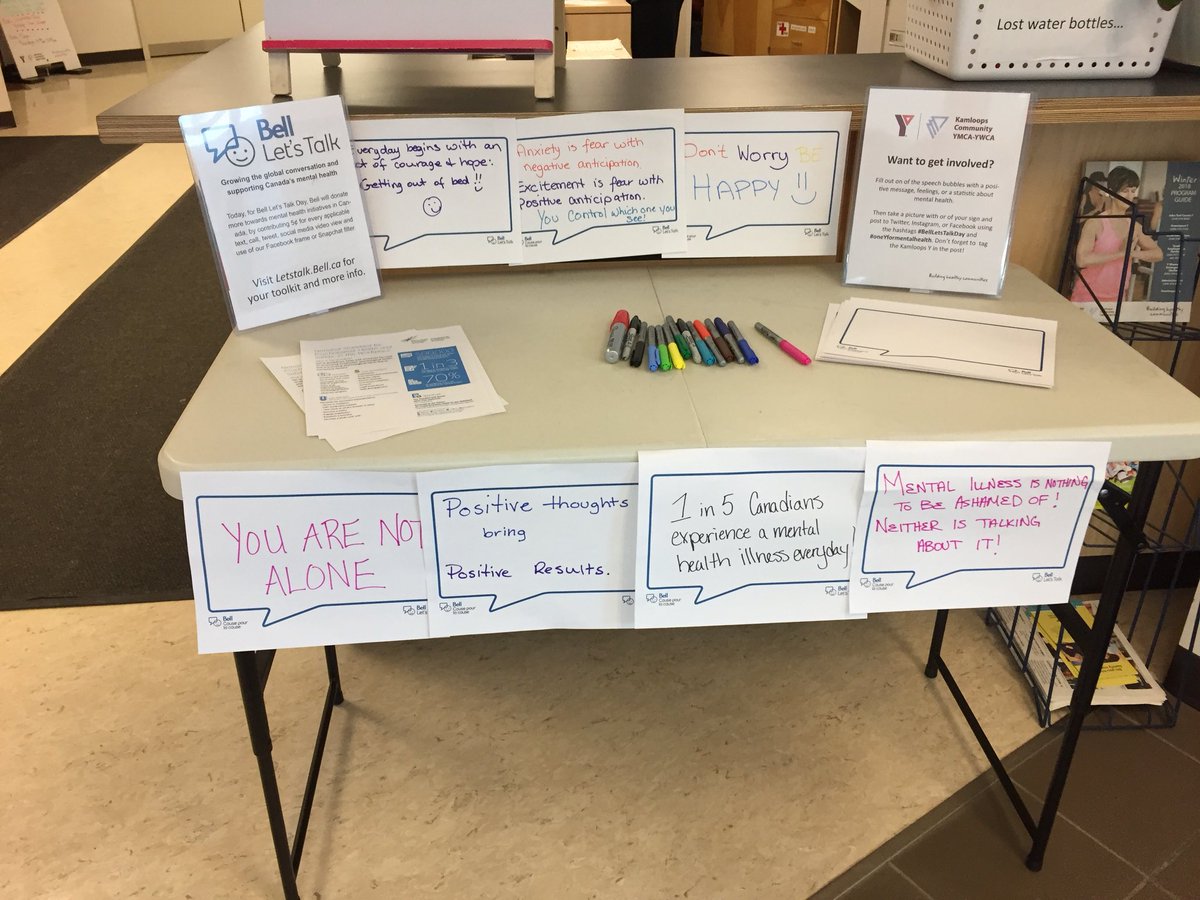 Lost water bottles...
Bell
Let's Talk
Growing the global conversation and
supporting Canada's mental health
Today, for Bell Let's Talk Day, Bell will donate
more towards mental health initiatives in Can-
ada, by contributing 5¢ for every applicable
text, call, tweet, social media video view and
use of our Facebook frame or Snapchat filter
Visit Letstalk.Bell.ca for
your toolkit and more info.
veryday begins with an
ct of courage & hope:
Getting out of bed!!
Anxiety is fear with
negative anticipation.
Excitement is fear with
positive anticipation.
You control which one you
see!
Don't Worry BE
HAPPY!!
Kamloops
Community
YMCA-YWCA
Want to get involved?
Fill out on of the speech bubbles with a posi-
tive message, feelings, or a statistic about
mental health.
Then take a picture with or of your sign and
post to Twitter, Instagram, or Facebook using
the hashtags #BellLetsTalkDay and
#oneYformentalhealth. Don't forget to tag
the Kamloops Y in the post!
Building healthy communities
Winter
2018
PROGRAM
GUIDE
1 in 3
70%
YOU ARE NOT
ALONE
Bell
Cause pour
la cause
Bell
Let's
Positive thoughts
bring
Positive Results.
Bell
Cause pour
la cause
1 in 5 Canadians
experience a mental
health illness everyday
Bell
Cause pour
la cause
Bell
Let's
MENTAL ILLNESS IS NOTHING
TO BE ASHAMED OF!
NEITHER IS TALKING
ABOUT IT!
Bell
Cause pour
la cause
Bell
Let's Talk